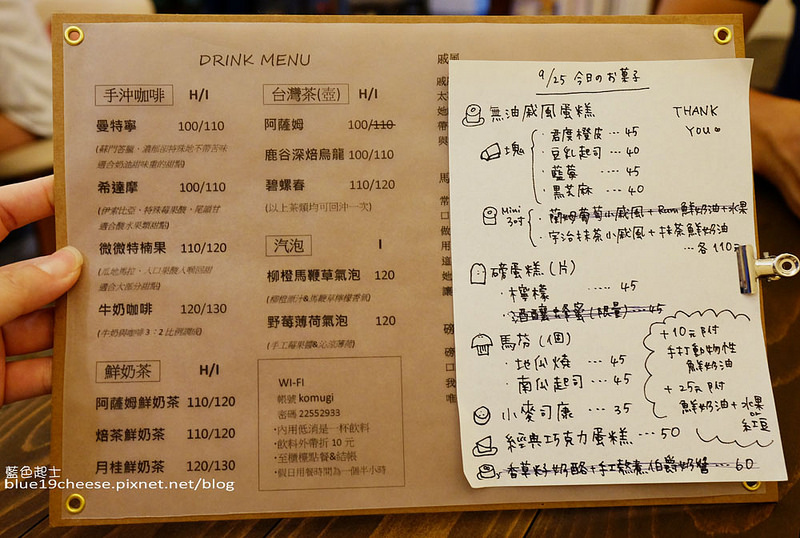 DRINK MENU
手沖咖啡 H/I
曼特寧 100/110
(蘇門答臘，濃郁卻特殊地不帶苦味
適合奶油甜味重的甜點)
希達摩 100/110
(伊索比亞，特殊莓果酸，尾韻甘
適合酸水果類甜點)
微微特楠果 110/120
(瓜地馬拉，入口果酸入喉回甜
適合大部分甜點)
牛奶咖啡 120/130
(牛奶與咖啡3:2比例調成)
鮮奶茶 H/I
阿薩姆鮮奶茶 110/120
焙茶鮮奶茶 110/120
月桂鮮奶茶 120/130
台灣茶(壺) H/I
阿薩姆 100/110
鹿谷深焙烏龍 100/110
碧螺春 110/120
(以上茶類均可回沖一次)
汽泡 I
柳橙馬鞭草氣泡 120
(柳橙原汁&馬鞭草檸檬香氣)
野莓薄荷氣泡 120
(手工莓果醬&沁涼薄荷)
WI-FI
帳號 komugi
密碼 22552933
·內用低消是一杯飲料
·飲料外帶折 10 元
·至櫃檯點餐&結帳
·假日用餐時間為一個半小時
9/25 今日のお菓子
無油戚風蛋糕
塊
·君度橙皮…45
·豆乳起司…40
·藍莓…45
·黑芝麻…40
Mini 3吋
·蘭姆葡萄小戚風+Rum鮮奶油+水果
·宇治抹茶小戚風+抹茶鮮奶油
…各110元
磅蛋糕(片)
·檸檬 ....45
·酒釀蜂蜜(限量)…45
馬芬(個)
·地瓜燒 ....45
·南瓜起司…45
小麥司康…35
經典巧克力蛋糕…50
香草籽奶酪+手工熬煮伯爵奶醬…60
THANK
YOU
+10元附
手打動物性
鮮奶油
+25元附
鮮奶油+水果
or
紅豆
戚風
藍色起士
blue19cheese.pixnet.net/blog